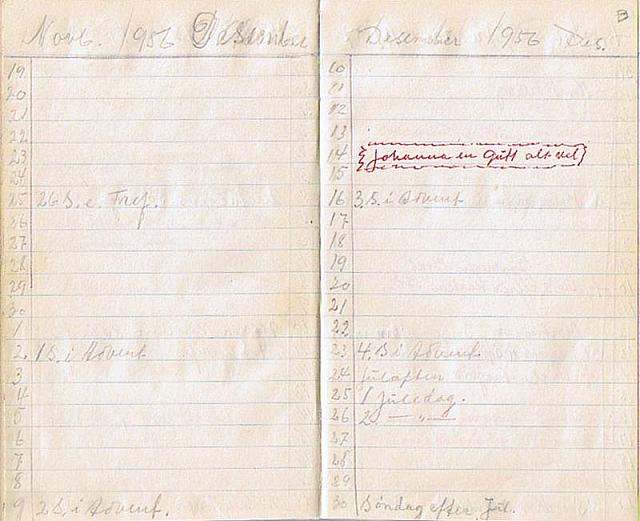 Novb. 1956 Desember
19
20
21
22
23
24
25 26 S. e. Tref.
26
27
28
29
30
1
2 1 S. i Advent
3
4
5
6
7
8
9 2 S. i Advent.
Desember 1956 Des.
10
11
12
13
14 Johanna en Gutt alt vel
15
16 3. S. i Advent
17
18
19
20
21
22
23 4. S i Advent.
24 Julaften
25 1 Juledag.
26 2. — " —
27
28
29
30 Søndag efter Jul.